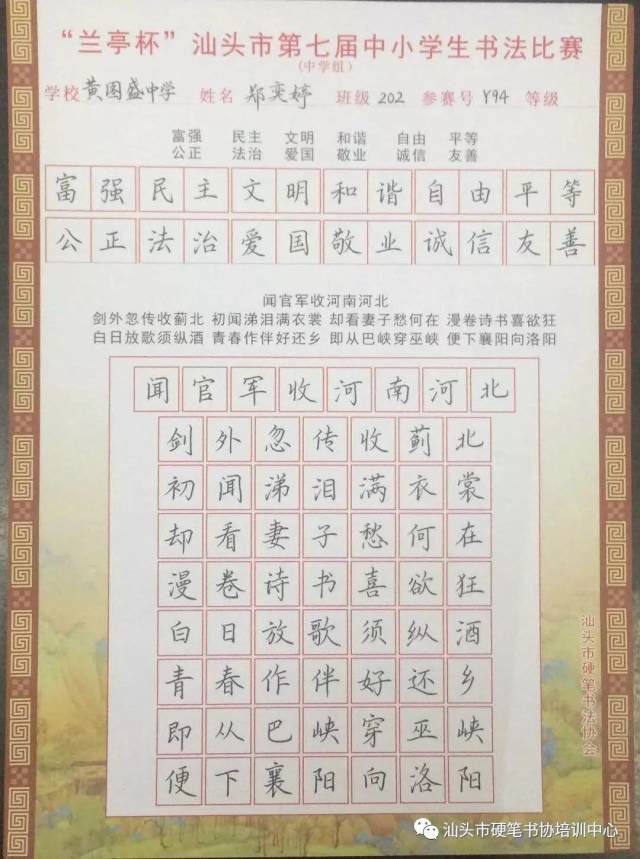 “兰亭杯”汕头市第七届中小学生书法比赛
(中学组)
学校 黄图盛中学 姓名 郑奕婷 班级 202 参赛号 Y94 等级
富强 民主 文明 和谐 自由 平等
公正 法治 爱国 敬业 诚信 友善
富强民主文明和谐自由平等
公正法治爱国敬业诚信友善
闻官军收河南河北
剑外忽传收蓟北 初闻涕泪满衣裳 却看妻子愁何在 漫卷诗书喜欲狂
白日放歌须纵酒 青春作伴好还乡 即从巴峡穿巫峡 便下襄阳向洛阳
闻官军收河南河北
剑外忽传收蓟北
初闻涕泪满衣裳
却看妻子愁何在
漫卷诗书喜欲狂
白日放歌须纵酒
青春作伴好还乡
即从巴峡穿巫峡
便下襄阳向洛阳
汕头市硬笔书法协会
汕头市硬笔书协培训中心